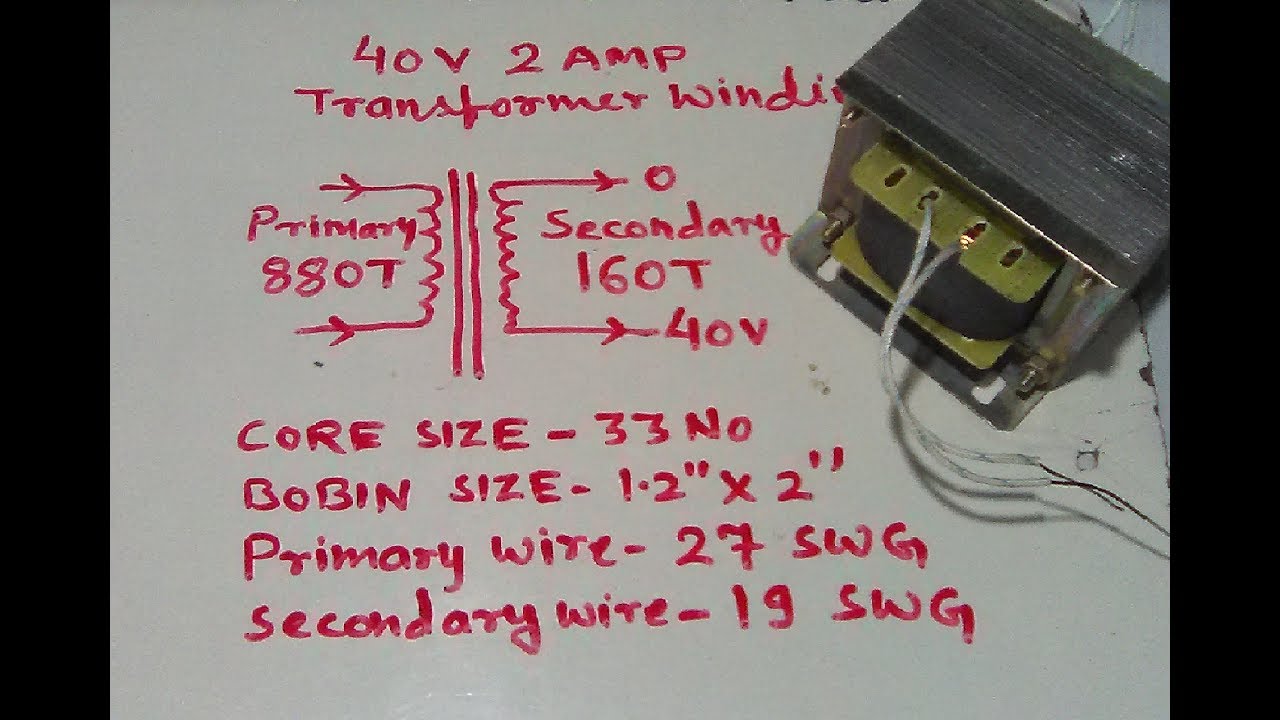 40V 2 AMP
Transformer Windi
0
Primary Secondary
880T 160T
40V
CORE SIZE - 33 NO
BOBIN SIZE - 1.2" X 2"
Primary wire - 27 SWG
Secondary wire - 19 SWG